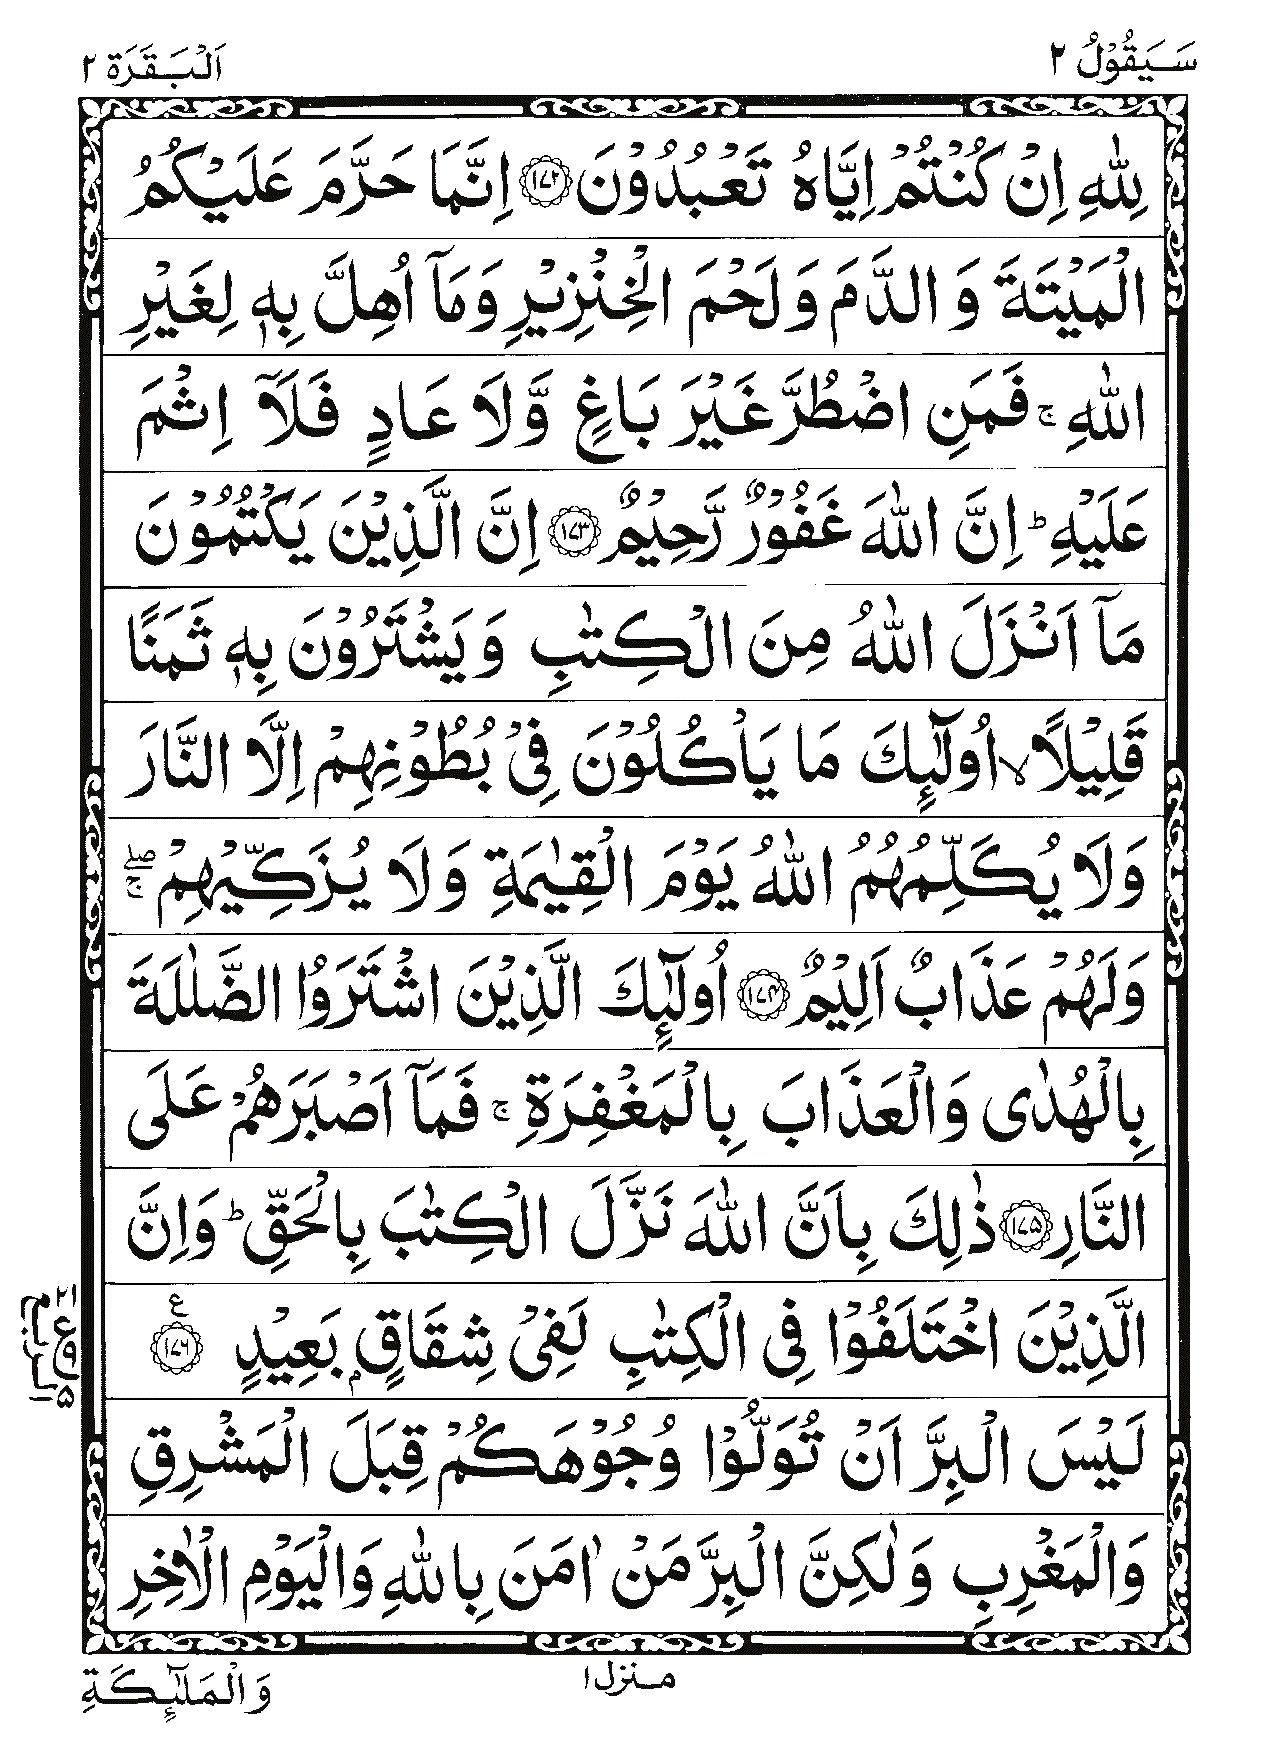 سَيَقُوْلُ ٢
اَلْبَقَرَة ٢
لِلّٰهِ اِنْ كُنْتُمْ اِيَّاهُ تَعْبُدُوْنَ ﴿١٧٢﴾ اِنَّمَا حَرَّمَ عَلَيْكُمُ
الْمَيْتَةَ وَ الدَّمَ وَ لَحْمَ الْخِنْزِيْرِ وَمَآ اُهِلَّ بِهٖ لِغَيْرِ
اللّٰهِ ۚ فَمَنِ اضْطُرَّ غَيْرَ بَاغٍ وَّلَا عَادٍ فَلَآ اِثْمَ
عَلَيْهِ ؕ اِنَّ اللّٰهَ غَفُوْرٌ رَّحِيْمٌ ﴿١٧٣﴾ اِنَّ الَّذِيْنَ يَكْتُمُوْنَ
مَآ اَنْزَلَ اللّٰهُ مِنَ الْكِتٰبِ وَيَشْتَرُوْنَ بِهٖ ثَمَنًا
قَلِيْلًا ۙ اُولٰٓئِكَ مَا يَاْكُلُوْنَ فِيْ بُطُوْنِهِمْ اِلَّا النَّارَ
وَلَا يُكَلِّمُهُمُ اللّٰهُ يَوْمَ الْقِيٰمَةِ وَلَا يُزَكِّيْهِمْ ۖۚ
وَلَهُمْ عَذَابٌ اَلِيْمٌ ﴿١٧٤﴾ اُولٰٓئِكَ الَّذِيْنَ اشْتَرَوُا الضَّلٰلَةَ
بِالْهُدٰى وَالْعَذَابَ بِالْمَغْفِرَةِ ۚ فَمَآ اَصْبَرَهُمْ عَلَى
النَّارِ ﴿١٧٥﴾ ذٰلِكَ بِاَنَّ اللّٰهَ نَزَّلَ الْكِتٰبَ بِالْحَقِّ ؕ وَاِنَّ
الَّذِيْنَ اخْتَلَفُوْا فِى الْكِتٰبِ لَفِيْ شِقَاقٍۭ بَعِيْدٍ ﴿١٧٦﴾ ع
الربع
٢١
ع
٥
لَيْسَ الْبِرَّ اَنْ تُوَلُّوْا وُجُوْهَكُمْ قِبَلَ الْمَشْرِقِ
وَالْمَغْرِبِ وَلٰكِنَّ الْبِرَّ مَنْ اٰمَنَ بِاللّٰهِ وَالْيَوْمِ الْاٰخِرِ
منزل ١
وَالْمَلٰٓئِكَةِ